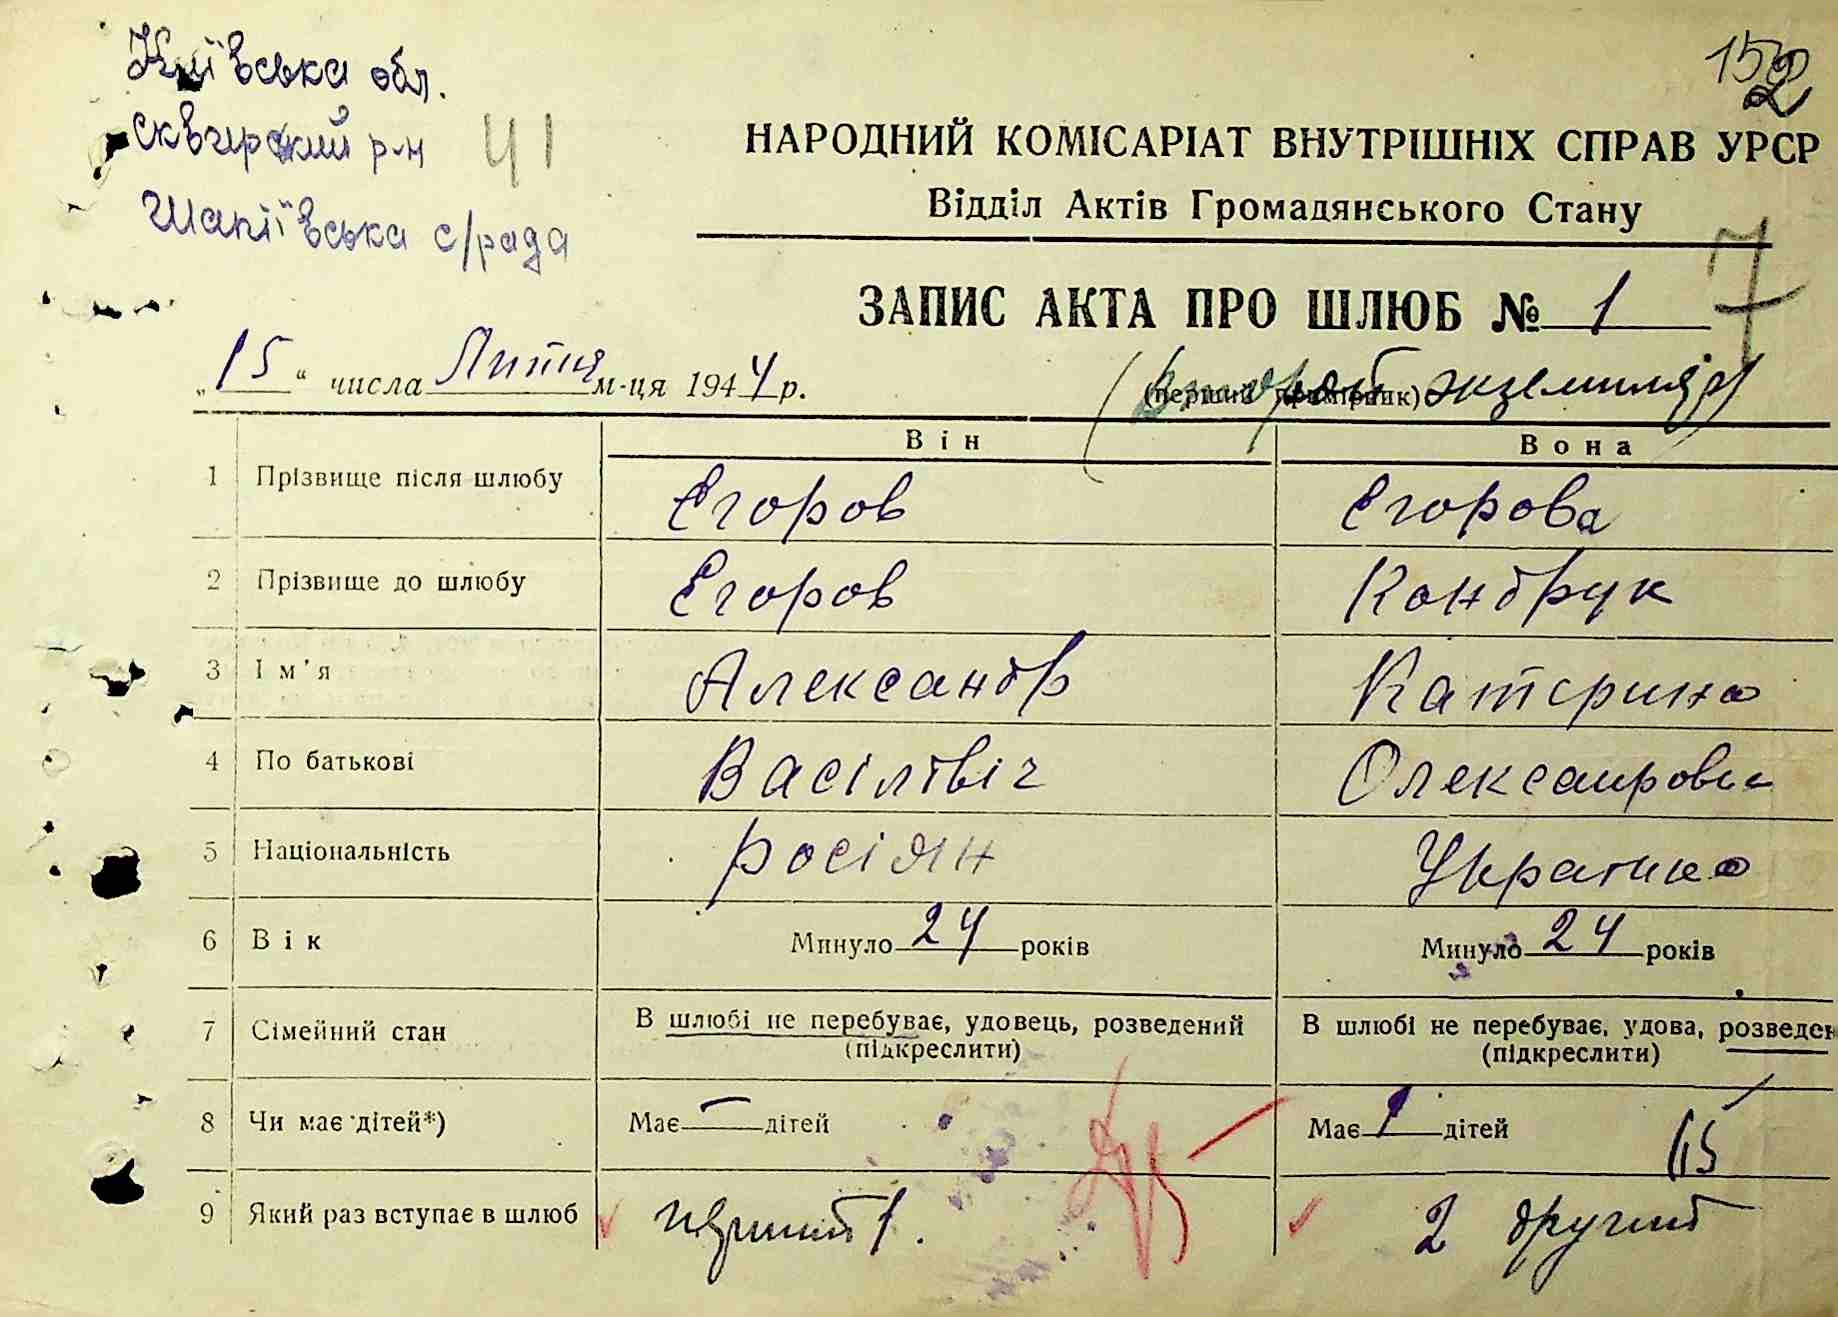 Київська обл.
Сквирский р-н 41
Шапіївська с/рада
152
НАРОДНИЙ КОМІСАРІАТ ВНУТРІШНІХ СПРАВ УРСР
Відділ Актів Громадянського Стану
7
ЗАПИС АКТА ПРО ШЛЮБ № 1
„15“ числа м-ця 1944 р.
(перший примірник) екземпляр)
Він Вона
1 Прізвище після шлюбу Єгоров Єгорова
2 Прізвище до шлюбу Єгоров Кондрук
3 Ім'я Александр Катерина
4 По батькові Васілєвіч
5 Національність росіян Українка
6 Вік Минуло 24 років Минуло 24 років
7 Сімейний стан В шлюбі не перебуває, удовець, розведений В шлюбі не перебуває, удова, розведен
(підкреслити) (підкреслити)
8 Чи має дітей*) Має — дітей Має 1 дітей
9 Який раз вступає в шлюб перший 1. 2 другий